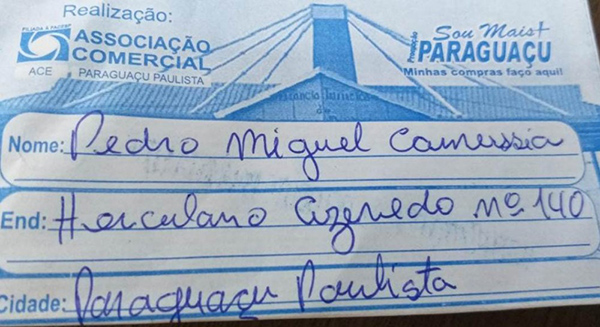 Realização:
FILIADA À FACESP
ASSOCIAÇÃO
COMERCIAL
ACE PARAGUAÇU PAULISTA
Promoção
Sou Mais+
PARAGUAÇU
Minhas compras faço aqui!
Estância Turística
de
Nome: Pedro Miguel Camerssia
End: Herculano Azevedo nº 140
Cidade: Paraguaçu Paulista